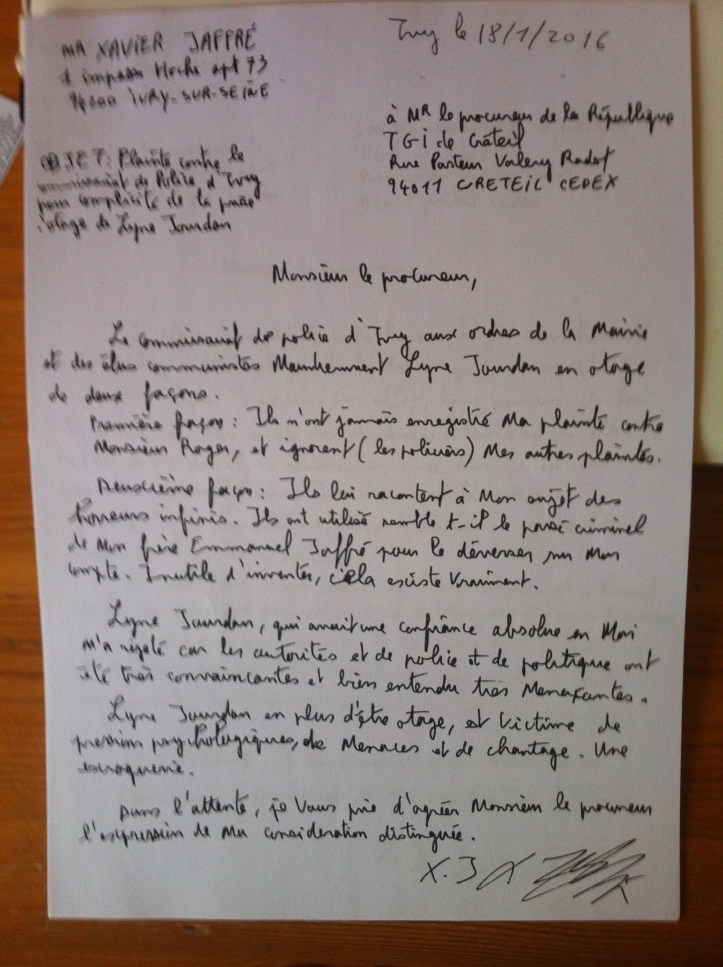 MR XAVIER JAFFRÉ
1 impasse Hoche apt 73
94200 IVRY-SUR-SEINE
Ivry le 18/1/2016
à MR le procureur de la République
TGI de Créteil
Rue Pasteur Valery Radot
94011 CRETEIL CEDEX
OBJET: Plainte contre le
commissariat de Police d'Ivry
pour complicité de la prise
d'otage de Lyne Jourdan
Monsieur le procureur,
Le commissariat de police d'Ivry aux ordres de la Mairie
et des élus communistes Maintiennent Lyne Jourdan en otage
de deux façons.
Première façon: Ils n'ont jamais enregistré Ma plainte contre
Monsieur Roger, et ignorent (les policiers) Mes autres plaintes.
Deuxième façon: Ils lui racontent à Mon sujet des
horreurs infinis. Ils ont utilisé semble t-il le passé criminel
de Mon frère Emmanuel Jaffré pour le déverser sur Mon
compte. Inutile d'inventer, cela existe Vraiment.
Lyne Jourdan, qui avait une confiance absolue en Moi
M'a rejeté car les autorités et de police et de politique ont
été très convaincantes et bien entendu très Menaçantes.
Lyne Jourdan en plus d'être otage, est Victime de
pressions psychologiques, de Menaces et de chantage. Une
escroquerie.
Dans l'attente, je Vous prie d'agréer Monsieur le procureur
l'expression de Ma considération distinguée.
X. J